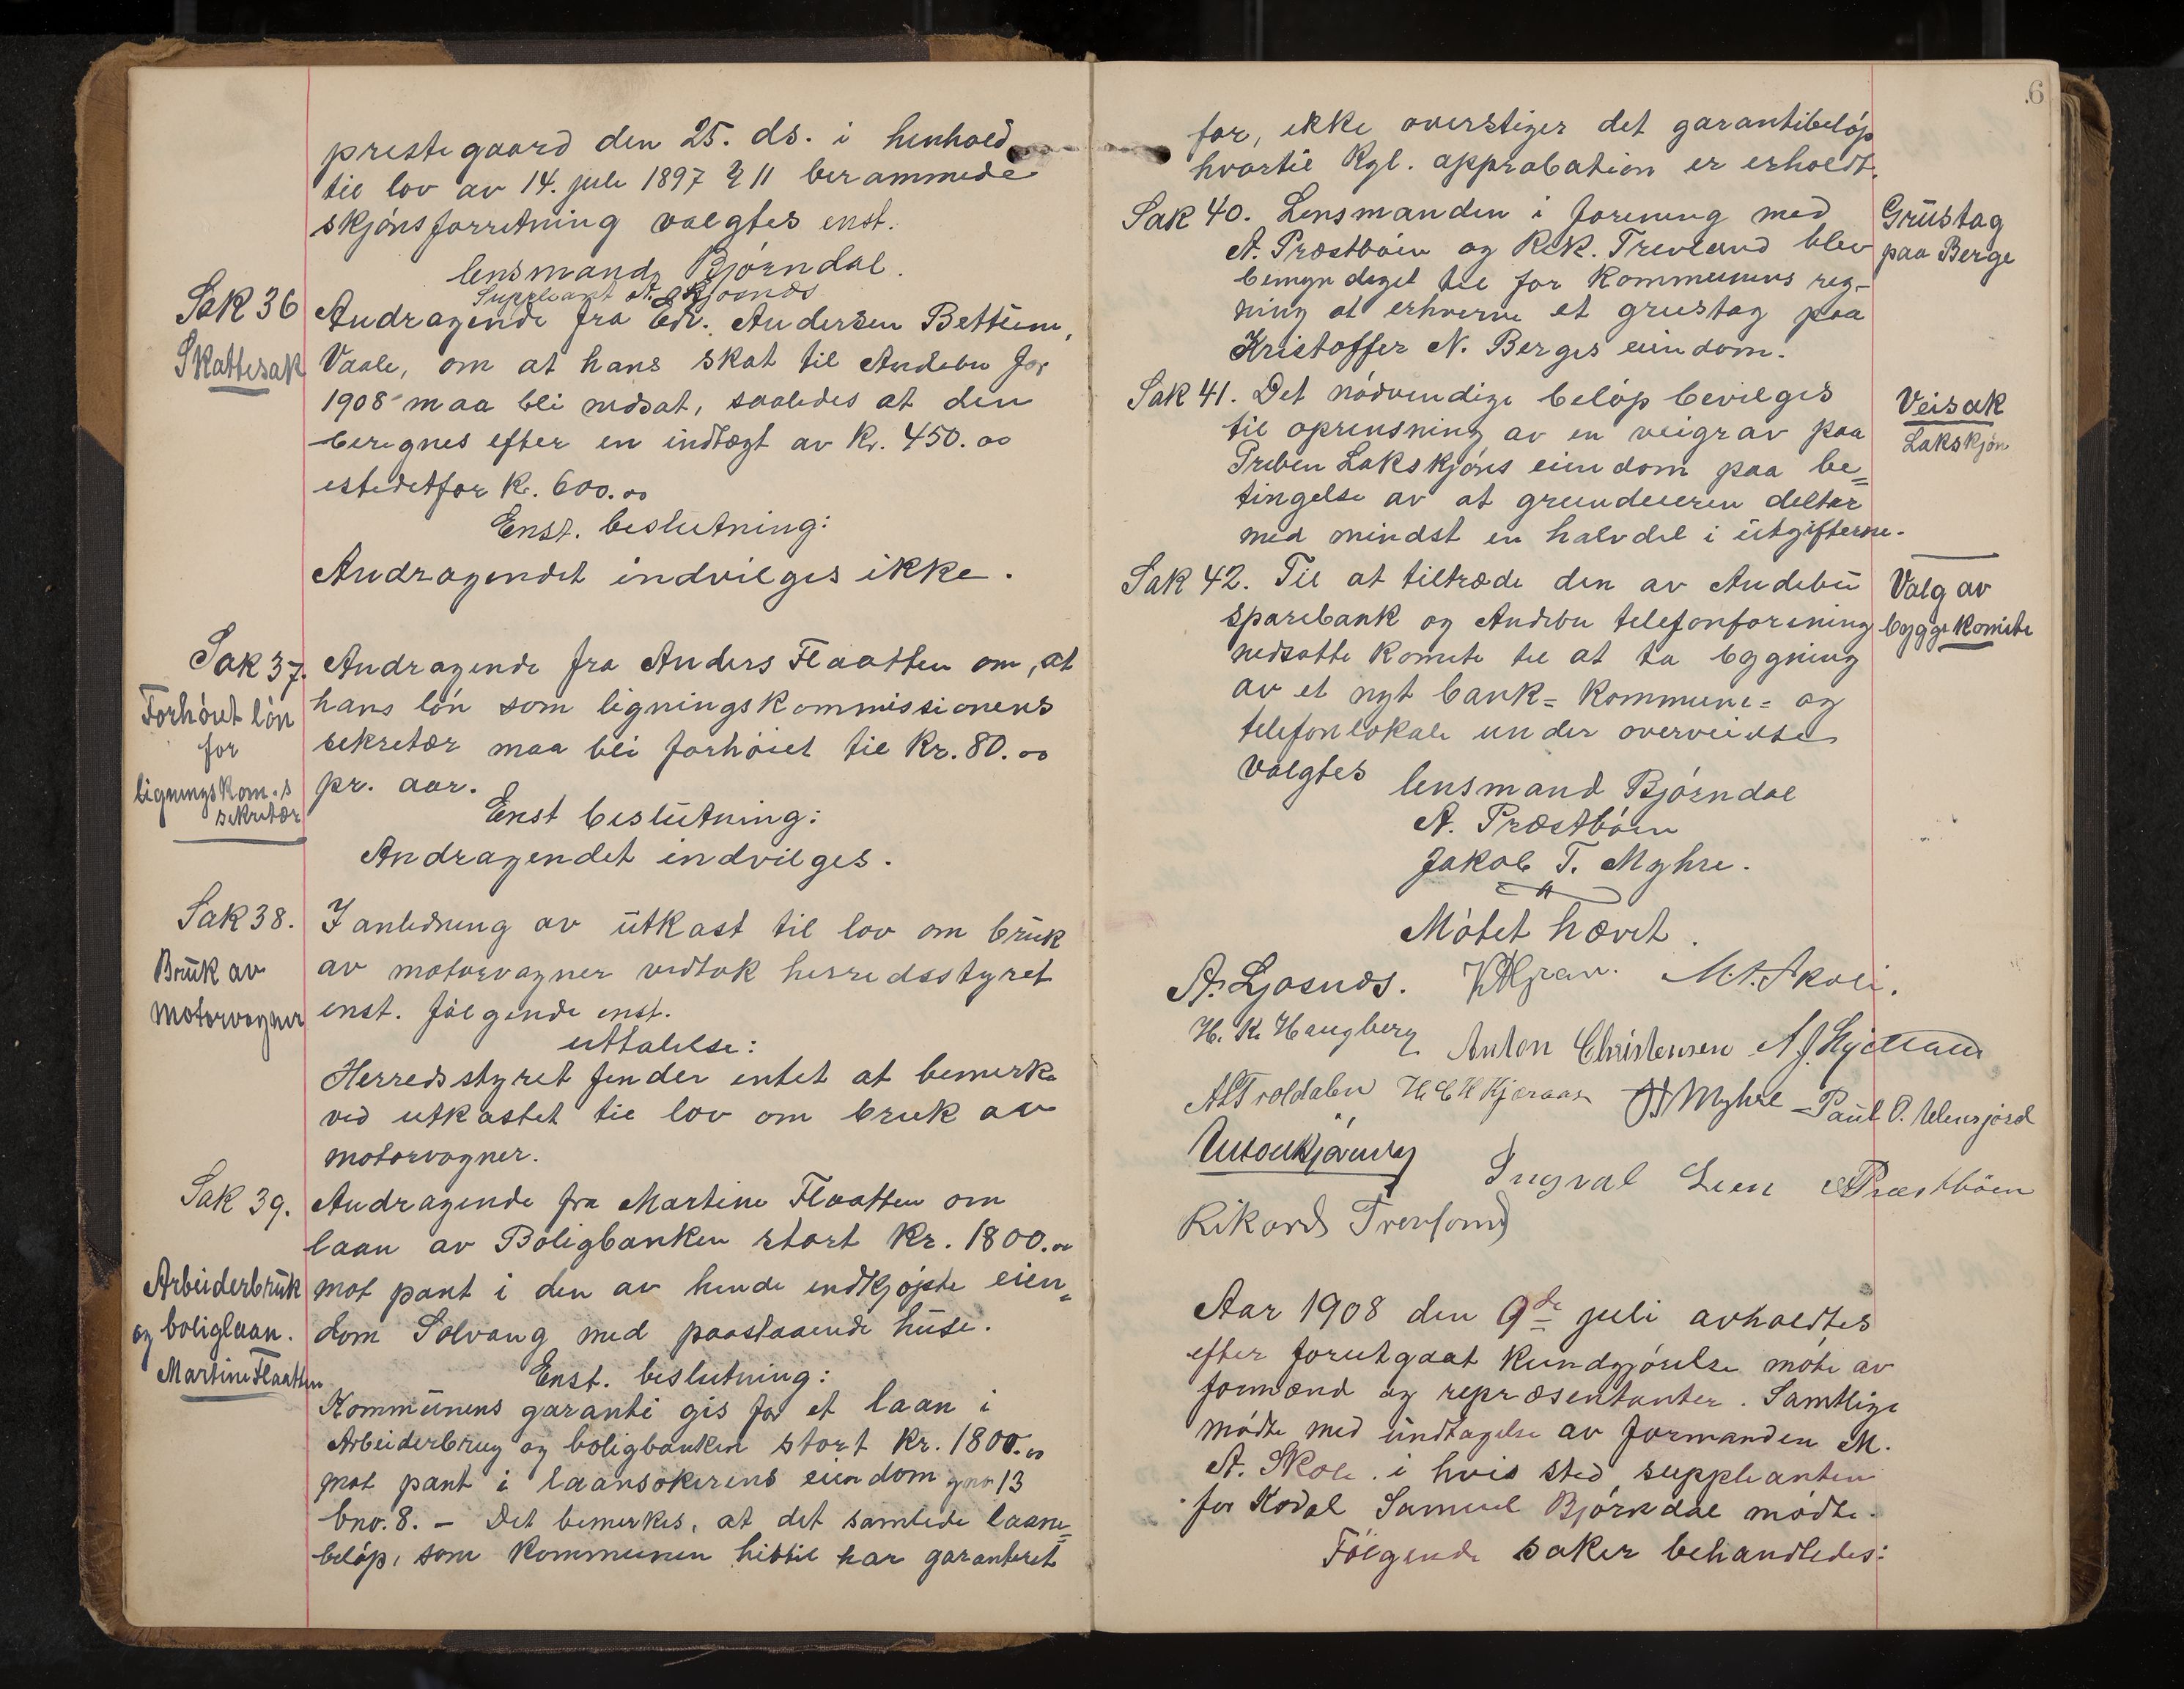 prestegaard den 25. ds. i henhold
til lov av 14. juli 1897 § 11 berammede
skjønsforretning valgtes enst.
lensmand Bjørndal.
Suppleant A.
Sak 36
Skattesak
Andragende fra Edv. Andersen Bettum,
Vaale, om at hans skat til Andebu for
1908 maa bli nedsat, saaledes at den
beregnes efter en indtægt av Kr. 450.00
istedetfor Kr. 600.00
Enst. beslutning:
Andragendet indvilges ikke.
Sak 37.
Forhøiet løn
for
ligningskom.s
sekretær
Andragende fra Anders Flaatten om, at
hans løn som ligningskommissionens
sekretær maa bli forhøiet til Kr. 80.00
pr. aar.
Enst beslutning:
Andragendet indvilges.
Sak 38.
Bruk av
motorvogner
I anledning av utkast til lov om bruk
av motorvogner vedtok herredsstyret
enst. følgende enst.
uttalelse:
Herredsstyret finder intet at bemerke
ved utkastet til lov om bruk av
motorvogner.
Sak 39.
Arbeiderbruk
og boliglaan.
Martine Flaatten
Andragende fra Martine Flaatten om
laan av Boligbanken stort Kr. 1800.00
mot pant i den av hende indkjøpte eien=
dom Solvang med paastaaende huse.
Enst. beslutning:
Kommunens garanti gis for et laan i
Arbeiderbrug og boligbanken stort Kr. 1800.00
mot pant i laansøkerens eiendom gno 13
bno. 8. – Det bemerkes, at det samlede laane=
beløp, som kommunen hittil har garanteret
6
for, ikke overstiger det garantibeløp
hvortil Kgl. approbation er erholdt.
Sak 40. Lensmanden i forening med
A. Præstbøen og Rik. Trevland blev
bemyndiget til for kommunens reg=
ning at erhverve et grustag paa
Kristoffer N. Berges eiendom.
Grustag
paa Berge
Sak 41. Det nødvendige beløp bevilges
til oprensning av en veigrav paa
Preben Lakskjøns eiendom paa be=
tingelse av at grundeieren deltar
med mindst en halvdel i utgifterne.
Veisak
Lakskjøn
Sak 42. Til at tiltræde den av Andebu
sparebank og Andebu telefonforening
nedsatte komite til at ta bygning
av et nyt bank= kommune= og
telefonlokale under overveielse
valgtes
Valg av
byggekomite
lensmand Bjørndal
A. Præstbøen
Jakob T. Myhre.
Møtet hævet.
A. Ljosnæs. M. A. Skoli.
H. K. Haugberg Anton Christensen
A Troldalen H C H Kjæraas Myhre Paul O.
Ingval Lien A Præstbøen
Rikard Trevland
Aar 1908 den 9de juli avholdtes
efter forutgaat kundgjørelse møte av
formænd og repræsentanter. Samtlige
mødte med undtagelse av formanden M.
A. Skoli i hvis sted suppleanten
for Kodal Samuel Bjørndal mødte.
Følgende saker behandledes: